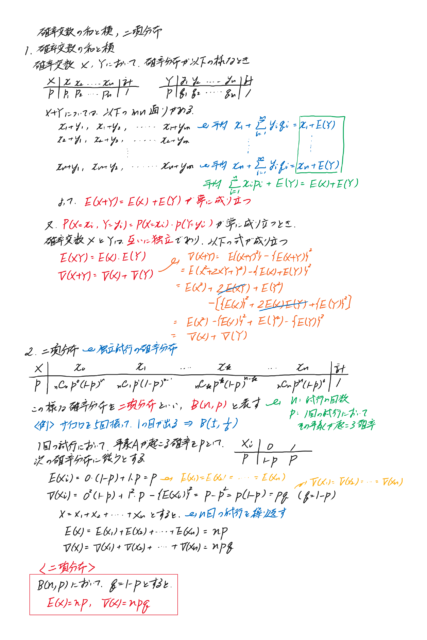 確率変数の和と積, 二項分布
1. 確率変数の和と積
確率変数 X, Yにおいて, 確率分布が以下の様なとき
X | x₁ x₂ … xₙ | 計
P | p₁ p₂ … pₙ | 1
Y | y₁ y₂ … yₘ | 計
P | q₁ q₂ … qₘ | 1
X+Yについては, 以下のmn通りがある.
x₁+y₁, x₁+y₂, …… x₁+yₘ ← 平均 x₁+Σyᵢqᵢ=x₁+E(Y)
x₂+y₁, x₂+y₂, …… x₂+yₘ
xₙ+y₁, xₙ+y₂, …… xₙ+yₘ ← 平均 xₙ+Σyᵢqᵢ=xₙ+E(Y)
平均 Σxᵢpᵢ+E(Y)=E(X)+E(Y)
よって, E(X+Y)=E(X)+E(Y)が常に成り立つ
又, P(X=xᵢ, Y=yⱼ)=P(X=xᵢ)・P(Y=yⱼ)が常に成り立つとき,
確率変数XとYは互いに独立であり, 以下の式が成り立つ
E(XY)=E(X)・E(Y)
V(X+Y)=V(X)+V(Y)
V(X+Y)=E((X+Y)²)-{E(X+Y)}²
=E(X²+2XY+Y²)-{E(X)+E(Y)}²
=E(X²)+2E(XY)+E(Y²)
-[{E(X)}²+2E(X)E(Y)+{E(Y)}²]
=E(X²)-{E(X)}²+E(Y²)-{E(Y)}²
=V(X)+V(Y)
2. 二項分布 ← 独立試行の確率分布
X | x₀ x₁ … xₖ … xₙ | 計
P | ₙC₀p⁰(1-p)ⁿ ₙC₁p¹(1-p)ⁿ⁻¹ ₙCₖpᵏ(1-p)ⁿ⁻ᵏ ₙCₙpⁿ(1-p)⁰ | 1
この様な確率分布を二項分布といい, B(n,p)と表す ← n: 試行の回数
p: 1回の試行において
その事象が起こる確率
<例> サイコロを5回振って, 1の目が出る ⇒ B(5, 1/6)
1回の試行において, 事象Aが起こる確率をpとして,
次の確率分布に従うとする
Xᵢ | 0 1
P | 1-p p
E(Xᵢ)=0・(1-p)+1・p=p ← E(X₁)=E(X₂)=…=E(Xₙ)
V(Xᵢ)=0²(1-p)+1²・p-{E(Xᵢ)}²=p-p²=p(1-p)=pq (q=1-p)
V(X₁)=V(X₂)=…=V(Xₙ)
X=X₁+X₂+…+Xₙとすると, ← n回の試行を繰り返す
E(X)=E(X₁)+E(X₂)+…+E(Xₙ)=np
V(X)=V(X₁)+V(X₂)+…+V(Xₙ)=npq
<二項分布>
B(n,p)において, q=1-pとすると,
E(X)=np, V(X)=npq